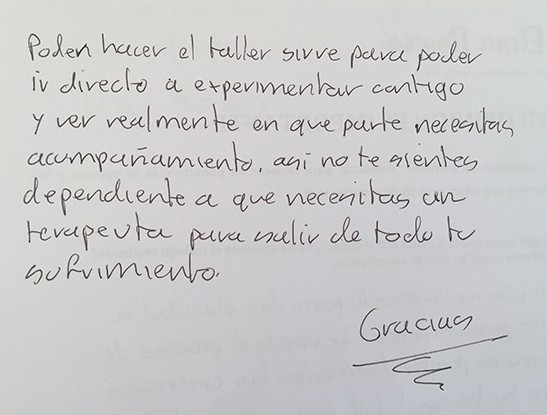 Poden hacer el taller sirve para poder
ir directo a experimentar contigo
y ver realmente en que parte necesitas
acompañamiento, asi no te sientes
dependiente a que necesitas un
terapeuta para salir de todo tu
sufrimiento.
Gracias